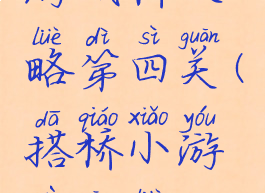 lüè dì sì guān
略第四关(
dā qiáo xiǎo yóu
搭桥小游